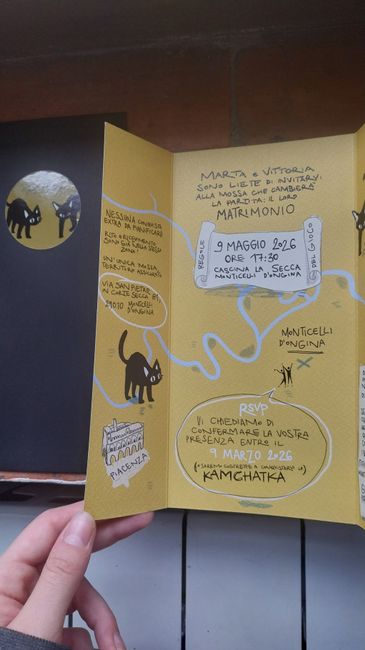 NESSINA CONQUISTA
EXTRA DA PIANIFICARE
RITO E RICEVIMENTO
SONO GIÀ NELLA STESSA
ZONA!
UN'UNICA MOSSA,
TERRITORIO ASSICURATO
VIA SAN PIETRO
IN CORTE SECCA
29010 MONTICELLI
D'ONGINA
PIACENZA
MARTA e VITTORIA
SONO LIETE DI INVITARVI
ALLA MOSSA CHE CAMBIERÀ
LA PARTITA: IL LORO
MATRIMONIO
REGOLE
9 MAGGIO 2026
ORE 17:30
CASCINA LA SECCA
MONTICELLI D'ONGINA
DEL GIOCO
MONTICELLI
D'ONGINA
X
RSVP
VI CHIEDIAMO DI
CONFERMARE LA VOSTRA
PRESENZA ENTRO IL
9 MARZO 2026
(o SAREMO COSTRETTE A
KAMCHATKA